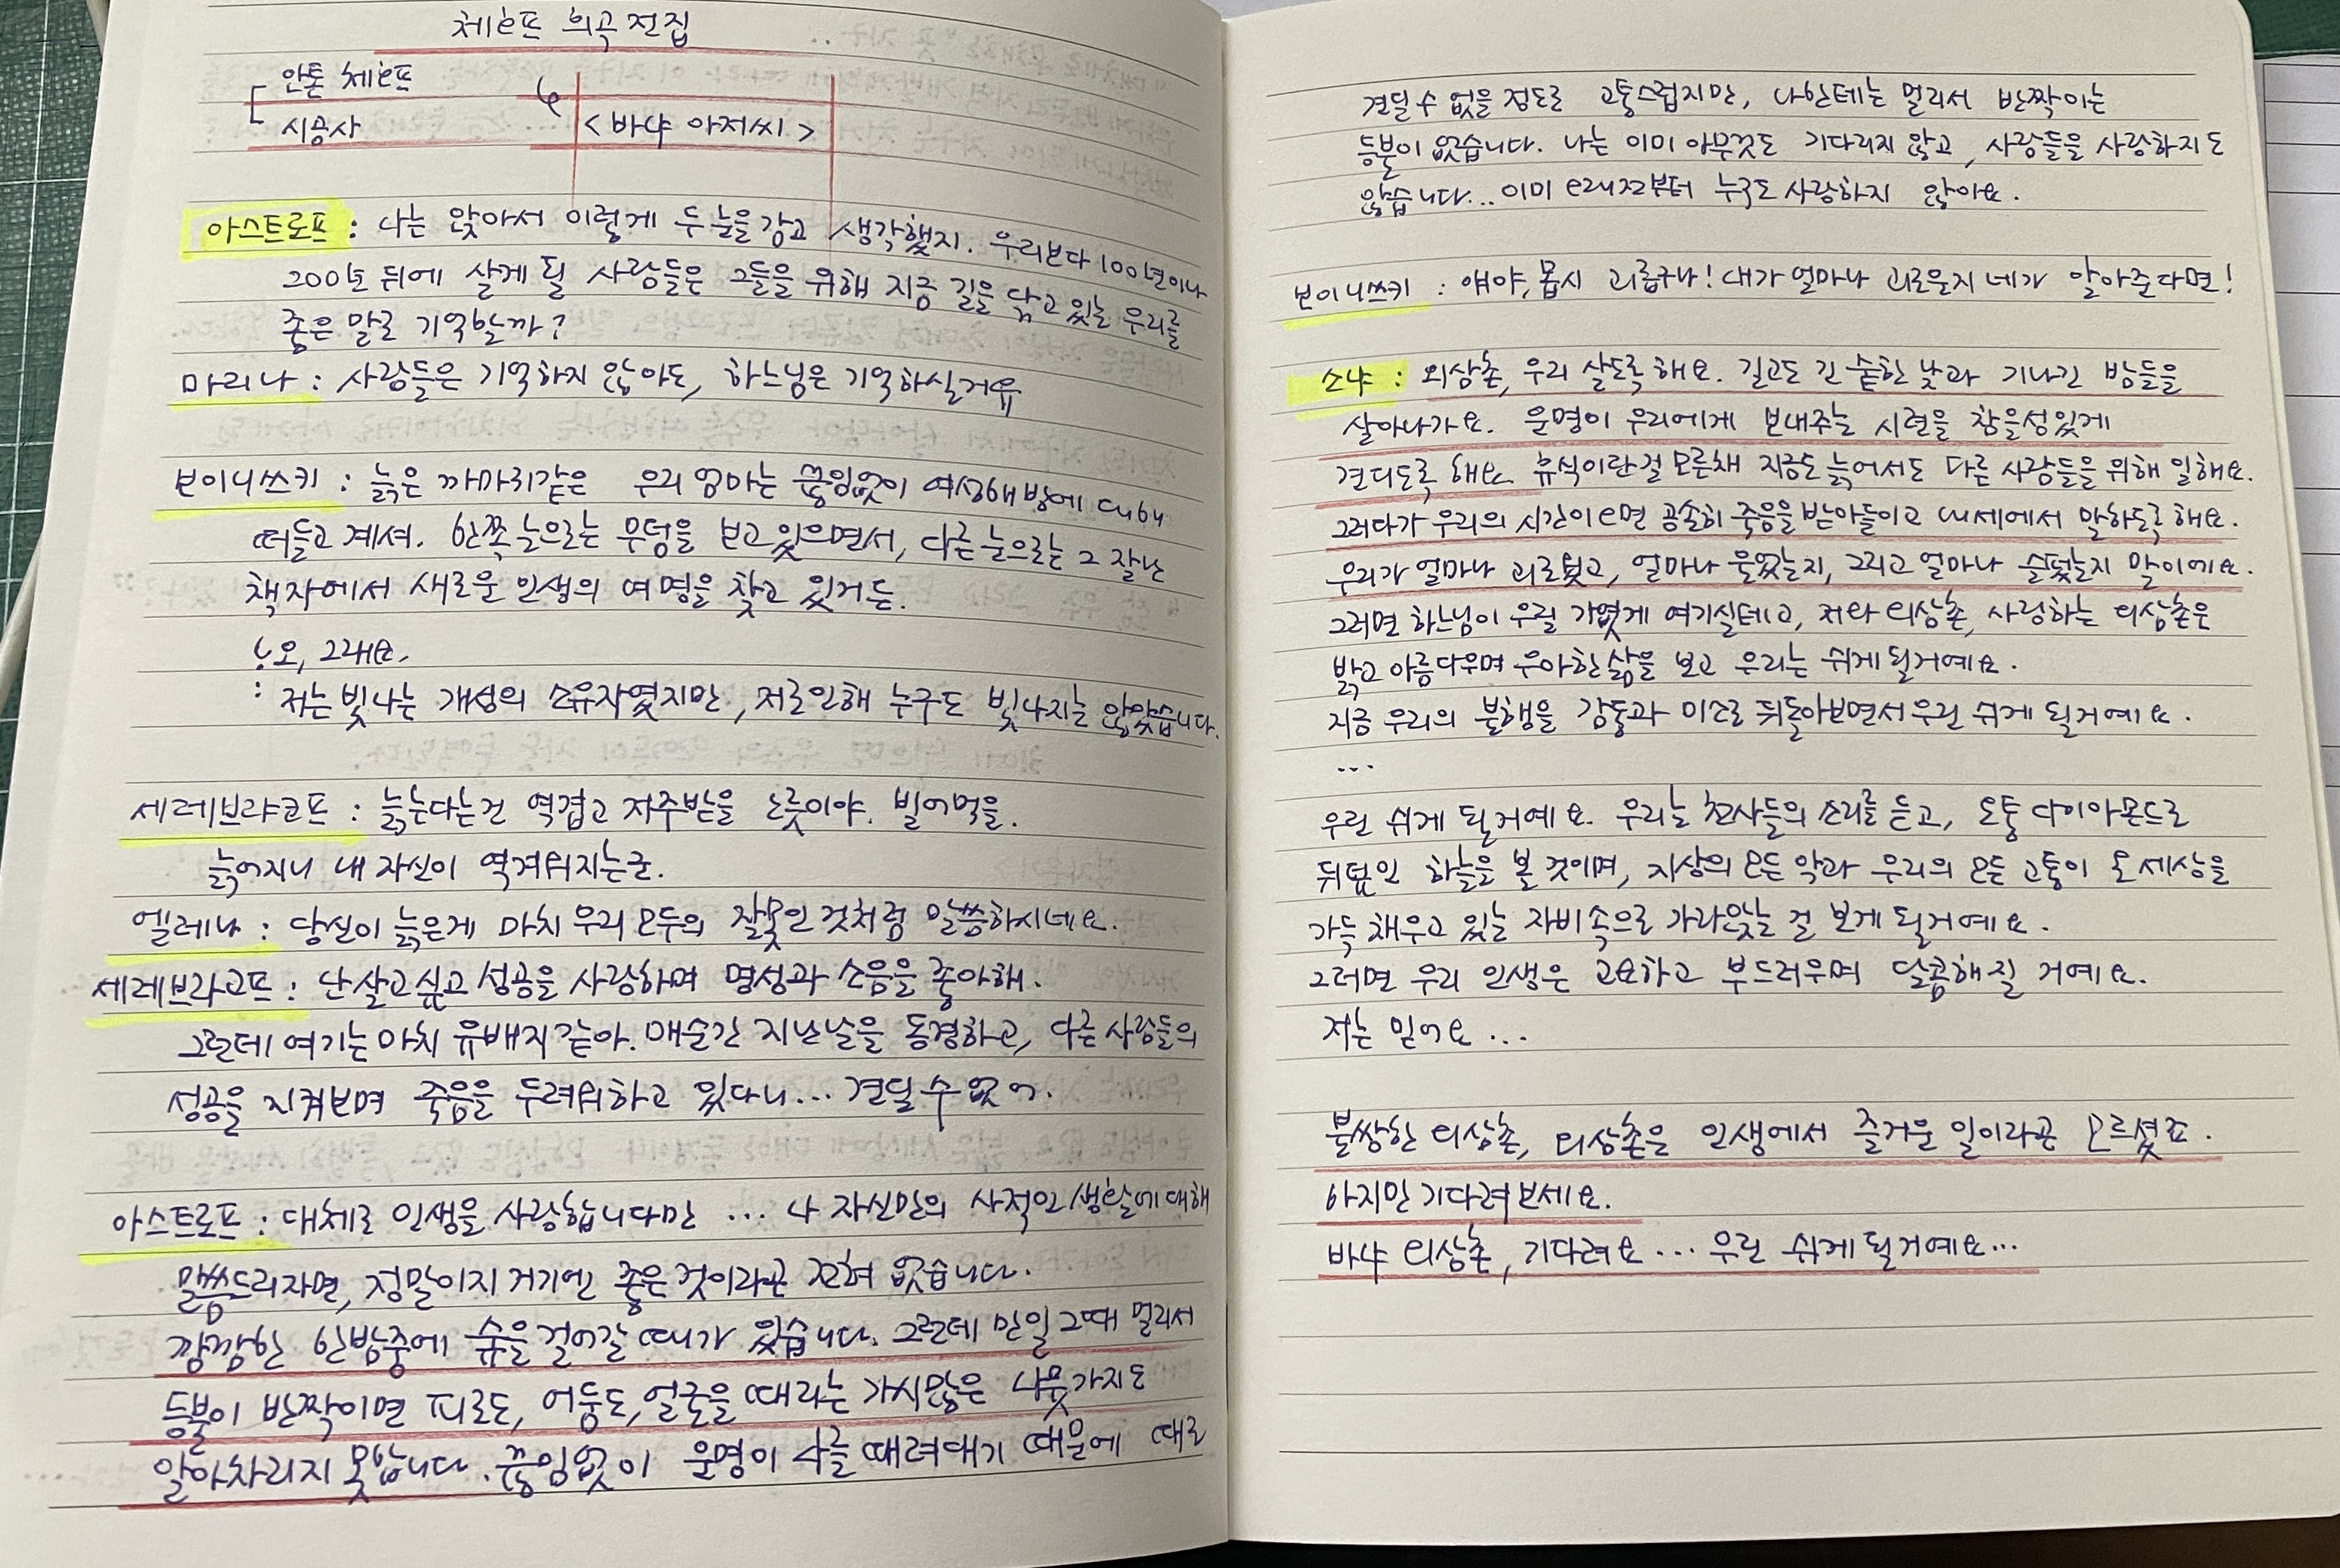 체호프 희곡 전집
안톤 체호프
시공사
<바냐 아저씨>
아스트로프 : 나는 앉아서 이렇게 두 눈을 감고 생각했지. 우리보다 100년이나
200년 뒤에 살게 될 사람들은 그들을 위해 지금 길을 닦고 있는 우리를
좋은 말로 기억할까?
마리나 : 사람들은 기억하지 않아도, 하느님은 기억하실거유
보이니쓰키 : 늙은 까마귀같은 우리 엄마는 끊임없이 여성해방에 대해
떠들고 계셔. 한쪽 눈으로는 무덤을 보고 있으면서, 다른 눈으로는 그 잘난
책자에서 새로운 인생의 여명을 찾고 있거든.
오, 그래요,
: 저는 빛나는 개성의 소유자였지만, 저로인해 누구도 빛나지는 않았습니다.
세레브랴코프 : 늙는다는건 역겹고 저주받을 노릇이야. 빌어먹을.
늙어지니 내 자신이 역겨워지는군.
엘레나 : 당신이 늙은게 마치 우리 모두의 잘못인 것처럼 말씀하시네요.
세레브랴코프 : 난 살고싶고 성공을 사랑하며 명성과 소음을 좋아해.
그런데 여기는 마치 유배지 같아. 매순간 지난날을 동경하고, 다른 사람들의
성공을 지켜보며 죽음을 두려워하고 있다니... 견딜 수 없어.
아스트로프 : 대체로 인생을 사랑합니다만 ... 나 자신만의 사적인 생활에 대해
말씀드리자면, 정말이지 거기엔 좋은 것이라곤 전혀 없습니다.
깜깜한 한밤중에 숲을 걸어갈 때가 있습니다. 그런데 만일 그때 멀리서
등불이 반짝이면 피로도, 어둠도, 얼굴을 때리는 가시많은 나뭇가지도
알아차리지 못합니다. 끊임없이 운명이 나를 때려대기 때문에 때로
견딜 수 없을 정도로 고통스럽지만, 나한테는 멀리서 반짝이는
등불이 없습니다. 나는 이미 아무것도 기다리지 않고, 사람들을 사랑하지도
않습니다... 이미 오래전부터 누구도 사랑하지 않아요.
보이니쓰키 : 얘야, 몹시 괴롭구나! 내가 얼마나 괴로운지 네가 알아준다면!
소냐 : 외삼촌, 우리 살도록 해요. 길고도 긴 숱한 낮과 기나긴 밤들을
살아나가요. 운명이 우리에게 보내주는 시련을 참을성있게
견디도록 해요. 휴식이란걸 모른채 지금도 늙어서도 다른 사람들을 위해 일해요.
그러다가 우리의 시간이 오면 공손히 죽음을 받아들이고 내세에서 말하도록 해요.
우리가 얼마나 괴로웠고, 얼마나 울었는지, 그리고 얼마나 슬펐는지 말이에요.
그러면 하느님이 우릴 가엾게 여기실테고, 저와 외삼촌, 사랑하는 외삼촌은
밝고 아름다우며 우아한 삶을 보고 우리는 쉬게 될거예요.
지금 우리의 불행을 감동과 미소로 뒤돌아보면서 우린 쉬게 될거예요.
...
우린 쉬게 될거예요. 우리는 천사들의 소리를 듣고, 온통 다이아몬드로
뒤덮인 하늘을 볼 것이며, 지상의 모든 악과 우리의 모든 고통이 온 세상을
가득 채우고 있는 자비속으로 가라앉는 걸 보게 될거예요.
그러면 우리 인생은 고요하고 부드러우며 달콤해질 거예요.
저는 믿어요 ...
불쌍한 외삼촌, 외삼촌은 인생에서 즐거운 일이라곤 모르셨죠.
하지만 기다려보세요.
바냐 외삼촌, 기다려요 ... 우린 쉬게 될거예요...